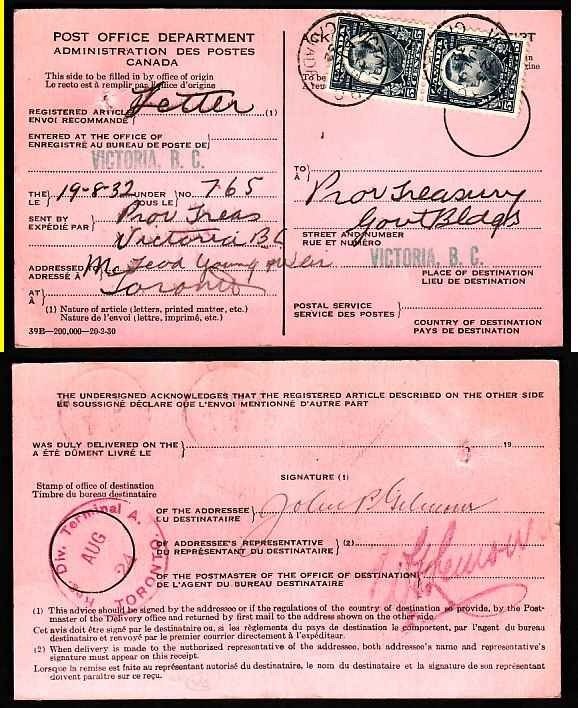 POST OFFICE DEPARTMENT
ADMINISTRATION DES POSTES
CANADA
This side to be filled in by office of origin
Le recto est à remplir par l'office d'origine
REGISTERED ARTICLE Letter (1)
ENVOI RECOMMANDÉ
ENTERED AT THE OFFICE OF
ENREGISTRÉ AU BUREAU DE POSTE DE
VICTORIA, B. C.
THE 19-8-32 UNDER NO. 765
LE SOUS LE
SENT BY Prov Treas
EXPÉDIÉ PAR Victoria BC
ADDRESSED TO McLeod Young
ADRESSÉ À
AT Toronto
À
(1) Nature of article (letters, printed matter, etc.)
Nature de l'envoi (lettre, imprimé, etc.)
39B—200,000—20-2-30
TO
À
Prov Treasury
Govt Bldgs
STREET AND NUMBER
RUE ET NUMÉRO
VICTORIA, B. C.
PLACE OF DESTINATION
LIEU DE DESTINATION
POSTAL SERVICE
SERVICE DES POSTES
COUNTRY OF DESTINATION
PAYS DE DESTINATION
THE UNDERSIGNED ACKNOWLEDGES THAT THE REGISTERED ARTICLE DESCRIBED ON THE OTHER SIDE
LE SOUSSIGNÉ DÉCLARE QUE L'ENVOI MENTIONNÉ D'AUTRE PART
WAS DULY DELIVERED ON THE 19
A ÉTÉ DÛMENT LIVRÉ LE
Stamp of office of destination
Timbre du bureau destinataire
SIGNATURE (1)
OF THE ADDRESSEE John P Gilmour
DU DESTINATAIRE
OF ADDRESSEE'S REPRESENTATIVE (2)
DU REPRÉSENTANT DU DESTINATAIRE
OF THE POSTMASTER OF THE OFFICE OF DESTINATION
DE L'AGENT DU BUREAU DESTINATAIRE
Div. Terminal A.
AUG
24
TORONTO
(1) This advice should be signed by the addressee or if the regulations of the country of destination so provide, by the Post-
master of the Delivery office and returned by first mail to the address shown on the other side.
Cet avis doit être signé par le destinataire ou, si les règlements du pays de destination le comportent, par l'agent du bureau
destinataire et renvoyé par le premier courrier directement à l'expéditeur.
(2) When delivery is made to the authorized representative of the addressee, both addressee's name and representative's
signature must appear on this receipt.
Lorsque la remise est faite au représentant autorisé du destinataire, le nom du destinataire et la signature de son représentant
doivent paraître sur ce reçu.